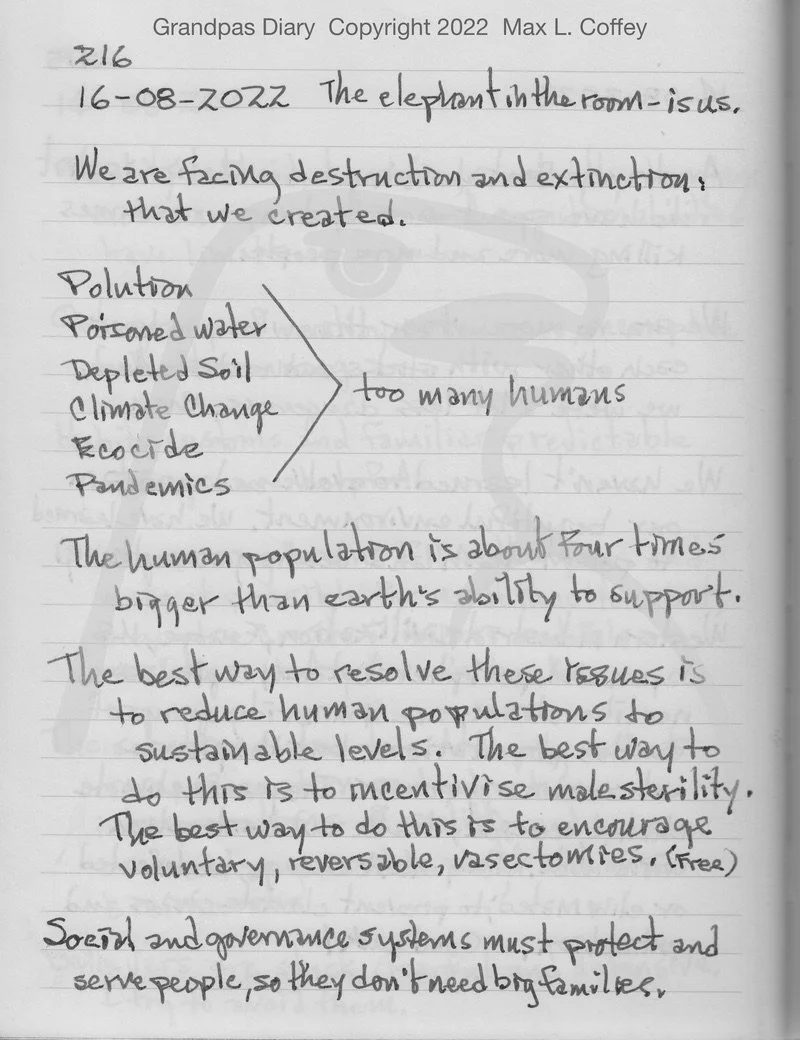 Grandpas Diary Copyright 2022 Max L. Coffey
216
16-08-2022 The elephant in the room - is us.
We are facing destruction and extinction;
that we created.
Polution
Poisoned water
Depleted Soil
Climate Change
Ecocide
Pandemics
too many humans
The human population is about four times
bigger than earth's ability to support.
The best way to resolve these issues is
to reduce human populations to
sustainable levels. The best way to
do this is to incentivise male sterility.
The best way to do this is to encourage
voluntary, reversable, vasectomies. (Free)
Social and governance systems must protect and
serve people, so they don't need big families.